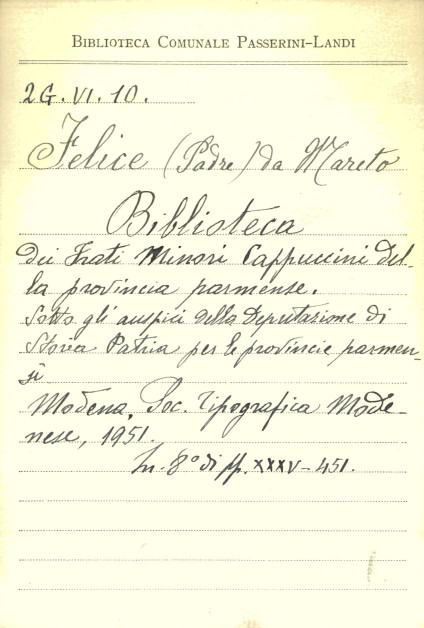 BIBLIOTECA COMUNALE PASSERINI-LANDI
2G.VI.10.
Felice (Padre) da Mareto
Biblioteca
dei Frati Minori Cappuccini del-
la provincia parmense.
Sotto gli auspici della Deputazione di
Storia Patria per le provincie parmen-
si
Modena, Soc. Tipografica Mode-
nese, 1951.
In. 8° di pp. XXXV-451.